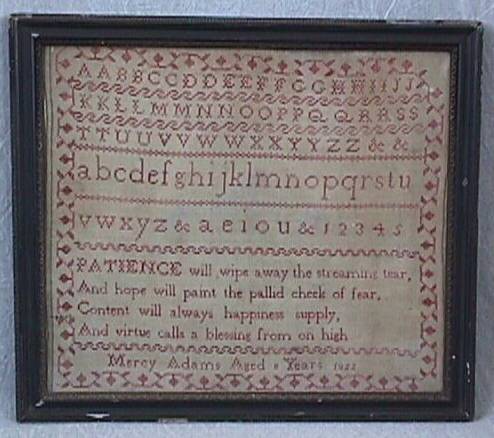 AABBCCDDEEFFGGHHIIJJ
KKLLMMNNOOPPQQRRSS
TTUUVVWWXXYYZZ & &
abcdefghijklmnopqrstu
vwxyz & aeiou & 12345
PATIENCE will wipe away the streaming tear,
And hope will paint the pallid cheek of fear,
Content will always happiness supply,
And virtue calls a blessing from on high
Mercy Adams Aged Years